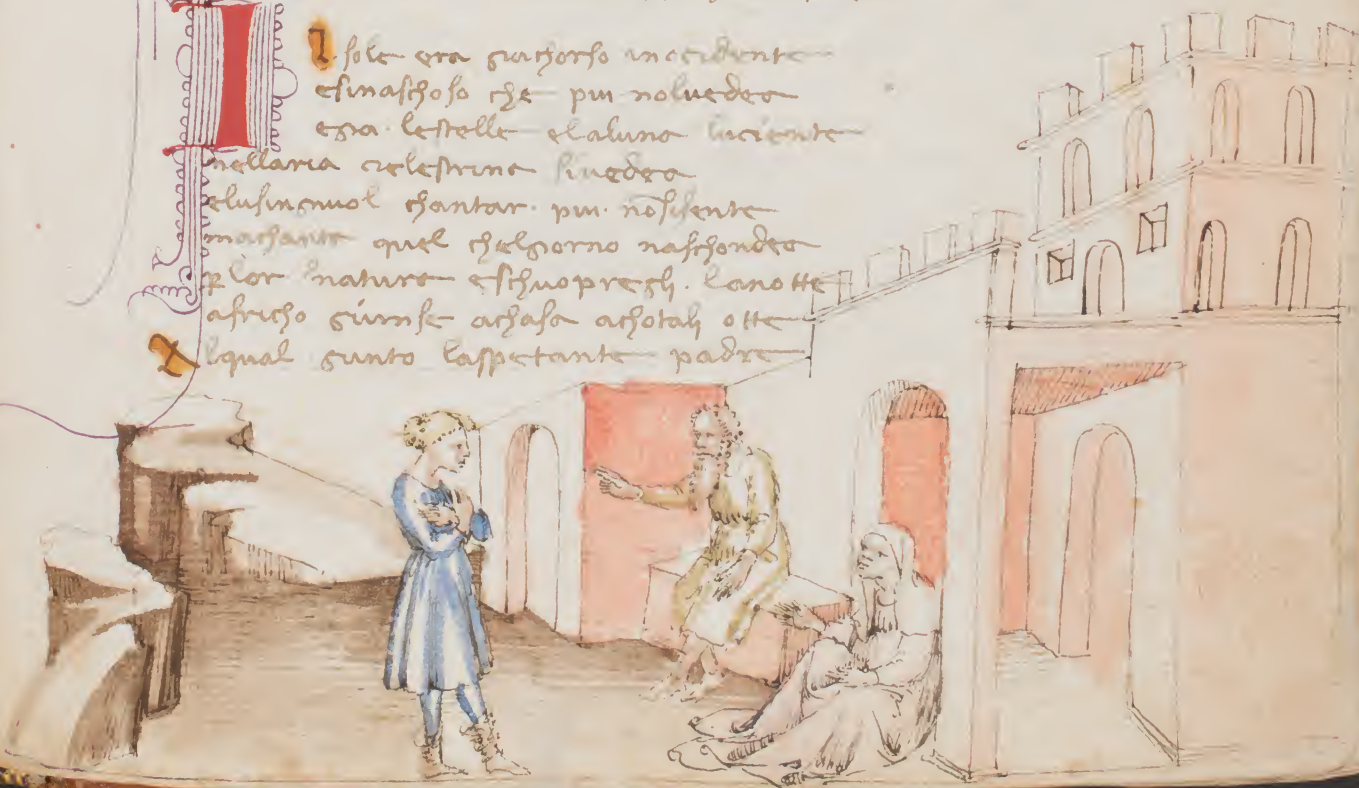 Il sole era gia chorso inocidente
esinaschoso che piu noluedea
egia lestelle elaluna luciente
nellaria cielestrina siuedea
elusingnuol chantar piu nōsisente
machante quel chelgiorno naschondea
ꝑ lor natura eschuopregli lanotte
africho giunse achasa achotali otte
Alqual giunto laspetante padre